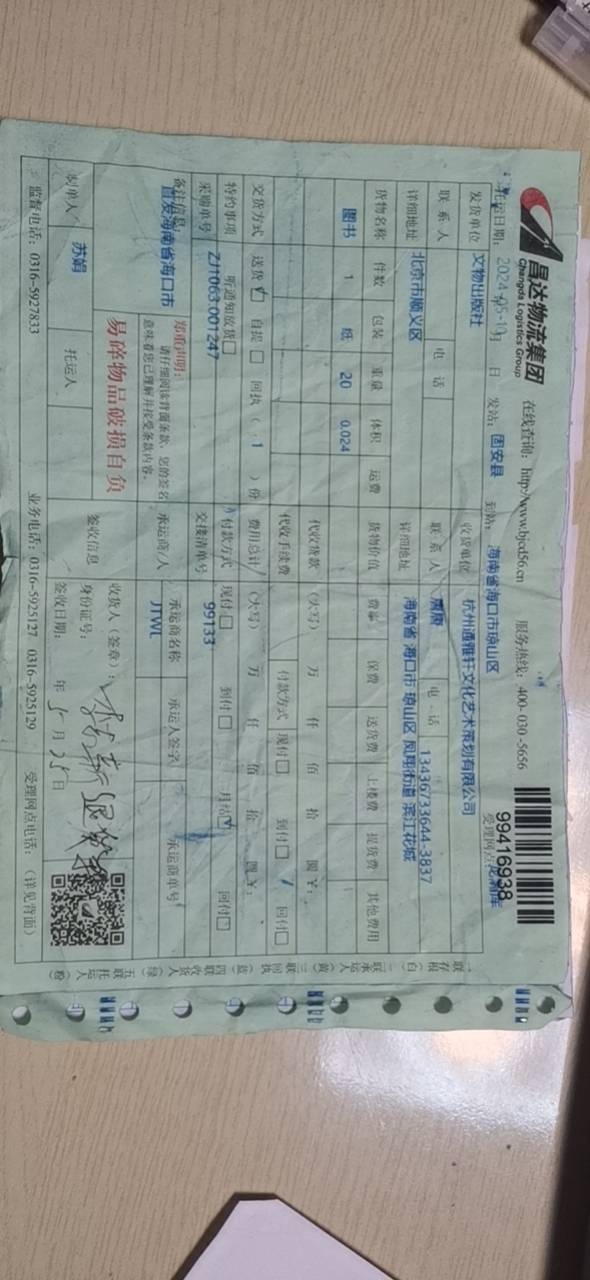 昌达物流集团
Changda Logistics Group
在线查询: http://www.bjcd56.cn 服务热线: 400-030-5656
99416938
托运日期: 2024-05-19 日 发站: 固安县 到站: 海南省海口市琼山区 受理网点:
发货单位 文物出版社 收货单位 杭州通雅轩文化艺术策划有限公司
联系人 电话 联系人 电话 13436733644-3837
详细地址 北京市顺义区 详细地址 海南省 海口市 琼山区 凤翔街道 滨江花城
货物名称 件数 包装 重量 体积 运费 货物价值 保费 送货费 上楼费 提货费 其他费用
图书 1 纸 20 0.024
代收货款 (大写) 万 仟 佰 拾 圆 ¥:
代收手续费 付款方式 现付□ 到付□ 回付□
交货方式 送货☑ 自提□ 回执(1)份 费用总计 (大写) 万 仟 佰 拾 圆 ¥:
特约事项 听通知放货□ 付款方式 现付□ 到付□ 月结☑ 回付□
采购单号 ZJ1063.001247 交接清单号 99133
备注信息: 直发海南省海口市
郑重声明:
请仔细阅读背面条款,您的签名
意味着您已理解并接受条款内容。
易碎物品破损自负
承运商/人 承运商名称 承运人签名 承运商单号
JTWL
制单人 苏娟 托运人 签收信息
收货人(签章):
身份证号:
签收日期: 年 5月25日
监督电话: 0316-5927833 业务电话: 0316-5925127 0316-5925129 受理网点电话: (详见背面)
一联存根(白) 二联承运人(黄) 三联回执(蓝) 四联收货人(绿) 五联托运人(粉)